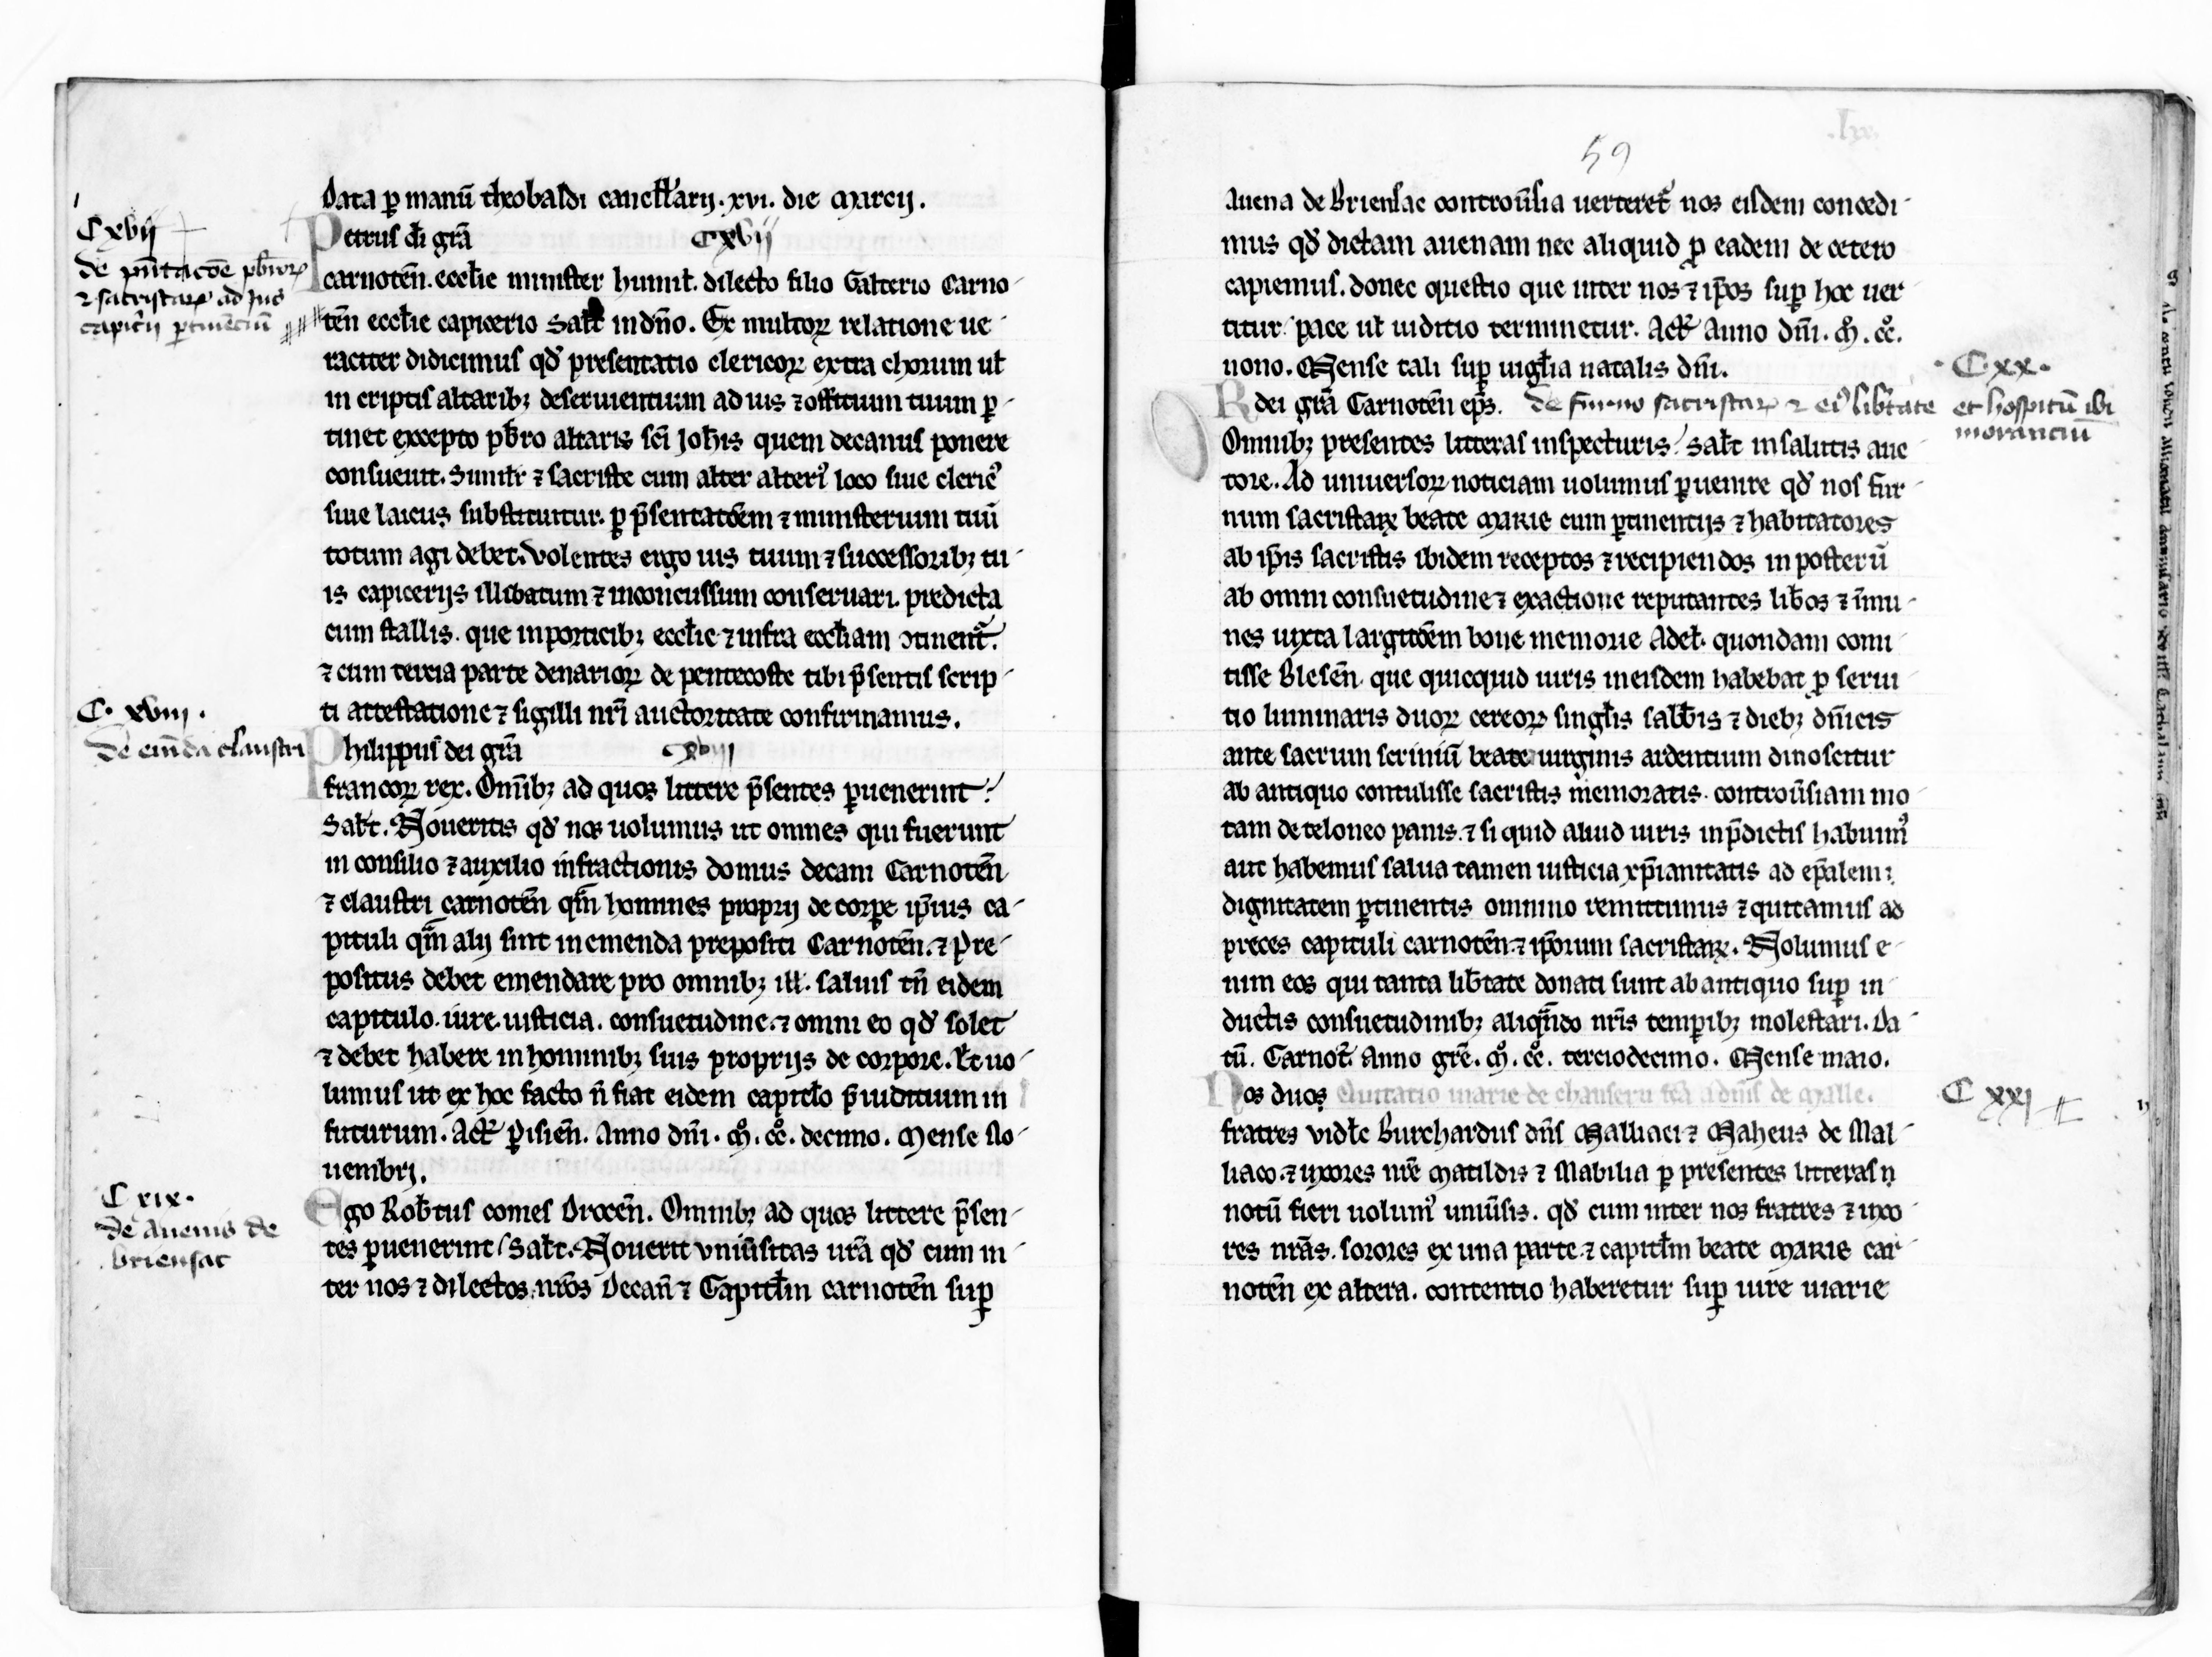 Data ꝑ manū theobaldi cancełłarij. xvi. die Marcij.
Cxvij
de p̄ntacōe pb̄roꝝ
⁊ sacristaꝝ ad jus
capic̄ij ꝑtinēciū
Petrus di grā Cxvij
carnotēn. eccłie minister humił. dilecto filio Galterio Carno
tēn eccłie capicerio Sałt in dn̄o. Ex multoꝝ relatione ue
raciter didicimus qđ presentatio clericoꝝ extra chorum uł
in criptis altaribꝫ deseruientium ad ius ⁊ offitium tuum ꝑ
tinet excepto pb̄ro altaris sc̄i Joh̄is quem decanus ponere
consueuit. Similr̄ ⁊ sacriste cum alter alteriꝰ loco siue clericꝰ
siue laicus substituitur. ꝑ p̄sentatōem ⁊ ministerium tuū
totum agi debet. Volentes ergo ius tuum ⁊ successoribꝫ tu
is capicerijs illibatum ⁊ inconcussum conseruari. predicta
cum stallis. que in porticibꝫ eccłie ⁊ infra eccłiam ↄtinent᷑.
⁊ cum tercia parte denarioꝝ de pentecoste tibi p̄sentis scrip
ti attestatione ⁊ sigilli nr̄i auctoritate confirmamus.
C. xviij.
de em̄da claustri
Philippus dei grā Cxviij
francoꝝ rex. Om̄ibꝫ ad quos littere p̄sentes ꝑuenerint.
Sałt. Noueritis qđ nos uolumus ut omnes qui fuerunt
in consilio ⁊ auxilio infractionis domus decani Carnotēn
⁊ claustri carnotēn qm̄ homines proprij de corpe ip̄ius ca
pituli qm̄ alij sint in emenda prepositi Carnotēn. ⁊ pre
positus debet emendare pro omnibꝫ iłł. saluis tn̄ eidem
capitulo. iure. iusticia. consuetudine. ⁊ omni eo qđ solet
⁊ debet habere in hominibꝫ suis proprijs de corpore. Et uo
lumus ut ex hoc facto n̄ fiat eidem capitło p̄iuditium in
futurum. Act᷑ ꝑisien̄. Anno dn̄i. M̊. cc̊. decimo. Mense No
uembrj.
C xix.
de auenis de
briensac
Ego Rob̄tus comes Drocēn. Omnibꝫ ad quos littere p̄sen
tes ꝑuenerint Sałt. Nouerit vniūsitas ur̄a qđ cum in
ter nos ⁊ dilectos nr̄os Decan̄ ⁊ Capitłm carnotēn suꝑ
59
auena de Briensac controūsia uerteret᷑ nos eisdem concedi
mus qđ dictam auenam nec aliquid ꝓ eadem de cetero
capiemus. donec questio que inter nos ⁊ ip̄os suꝑ hoc uer
titur pace uł iuditio terminetur. Act᷑ Anno dn̄i. M̊. cc̊.
nono. Mense tali suꝑ uigłia natalis dn̄i.
R dei grā Carnotēn ep̄s. de furno sacristaꝝ ⁊ eiꝰ lib̄tate
C.xx.
et hospitū ibi
moranciū
Omnibꝫ presentes litteras inspecturis. Sałt in salutis auc
tore. Ad uniuersoꝝ noticiam uolumus ꝑuenire qđ nos fur
num sacristaꝝ beate Marie cum ꝑtinentijs ⁊ habitatores
ab ip̄is sacristis ibidem receptos ⁊ recipiendos in posterū
ab omni consuetudine ⁊ exactione reputantes lib̄os ⁊ īmu
nes iuxta largitōem bone memorie Adeł. quondam comi
tisse Blesēn. que quicquid iuris in eisdem habebat ꝓ serui
tio luminaris duoꝝ cereoꝝ singłis sabb̄is ⁊ diebꝫ dn̄icis
ante sacrum scriniū beate uirginis ardentium dinoscitur
ab antiquo contulisse sacristis memoratis. controūsiam mo
tam de teloneo panis. ⁊ si quid aliud iuris in p̄dictis habuimꝰ
aut habemus salua tamen iusticia xp̄ianitatis ad ep̄alem
dignitatem ꝑtinentis omnino remittimus ⁊ quitamus ad
preces capituli carnotēn. ⁊ ip̄orum sacristaꝝ. Nolumus e
nim eos qui tanta lib̄tate donati sunt ab antiquo suꝑ in
ductis consuetudinibꝫ aliqn̄do nr̄is tempibꝫ molestari. Da
tū. Carnot̄. Anno gr̄e. M̊. cc̊. terciodecimo. Mense maio.
C xxj
Nos duos
fratres vidłc Burchardus dn̄s Malliaci ⁊ Maheus de Mal
liaco. ⁊ uxores nr̄e Matildis ⁊ Mabilia ꝑ presentes litteras
notū fieri uolumꝰ uniūsis. qđ cum inter nos fratres ⁊ uxo
res nr̄as. sorores ex una parte ⁊ capitłm beate Marie car
notēn ex altera. contentio haberetur suꝑ iure marie